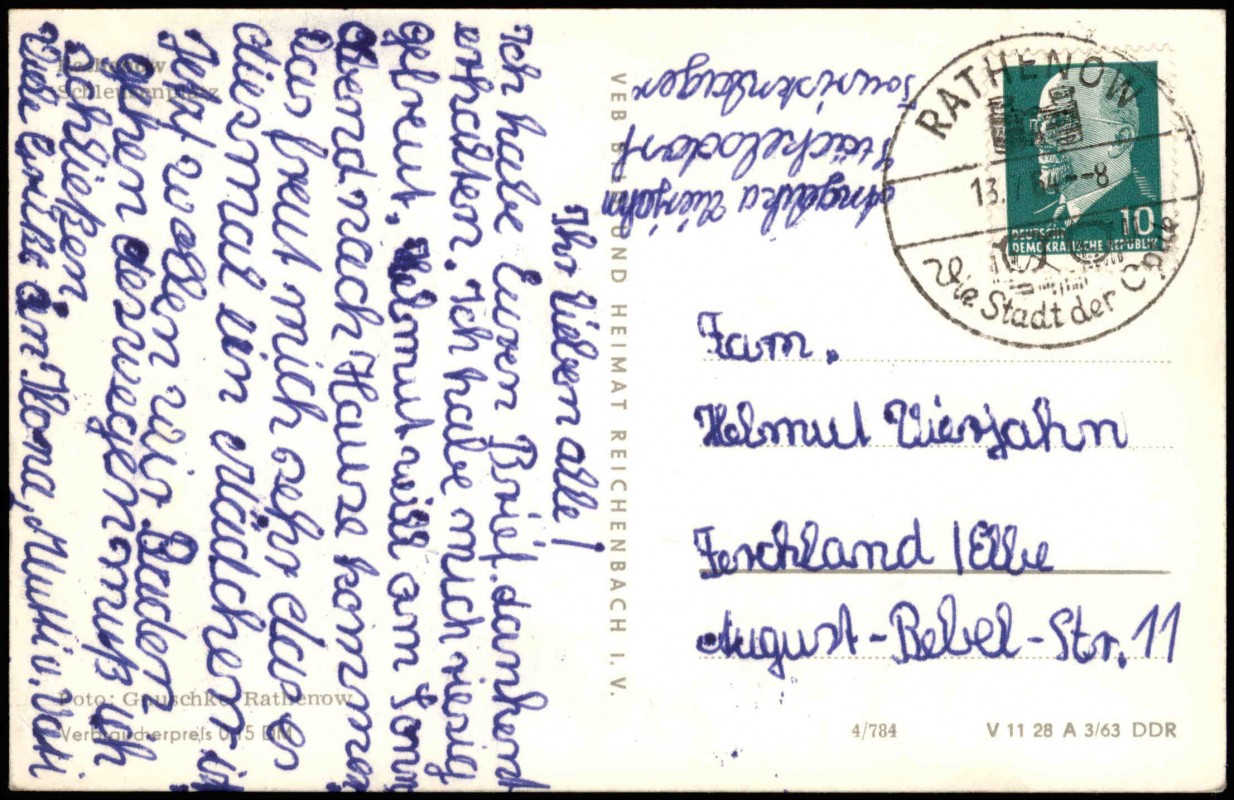 Rathenow
Schleusenplatz
Ihr Lieben alle!
Ich habe Euren Brief dankend
erhalten. Ich habe mich riesig
gefreut. Helmut will am Sonn
abend nach Hause kommen
Das freut mich sehr das es
diesmal ein Mädchen ist
Jetzt wollen wir Baden
gehen deswegen muß ich
schließen
Viele Grüße an Mutti u. Vati
Foto: Gauschke, Rathenow
Verbraucherpreis 0,15 DM
VEB BILD UND HEIMAT REICHENBACH I. V.
Angelika Viersjahn
RATHENOW
13. 7 64--8
Die Stadt der Optik
10
DEUTSCHE
DEMOKRATISCHE REPUBLIK
Fam.
Helmut Viersjahn
Ferchland / Elbe
August-Bebel-Str. 11
4/784
V 11 28 A 3/63 DDR